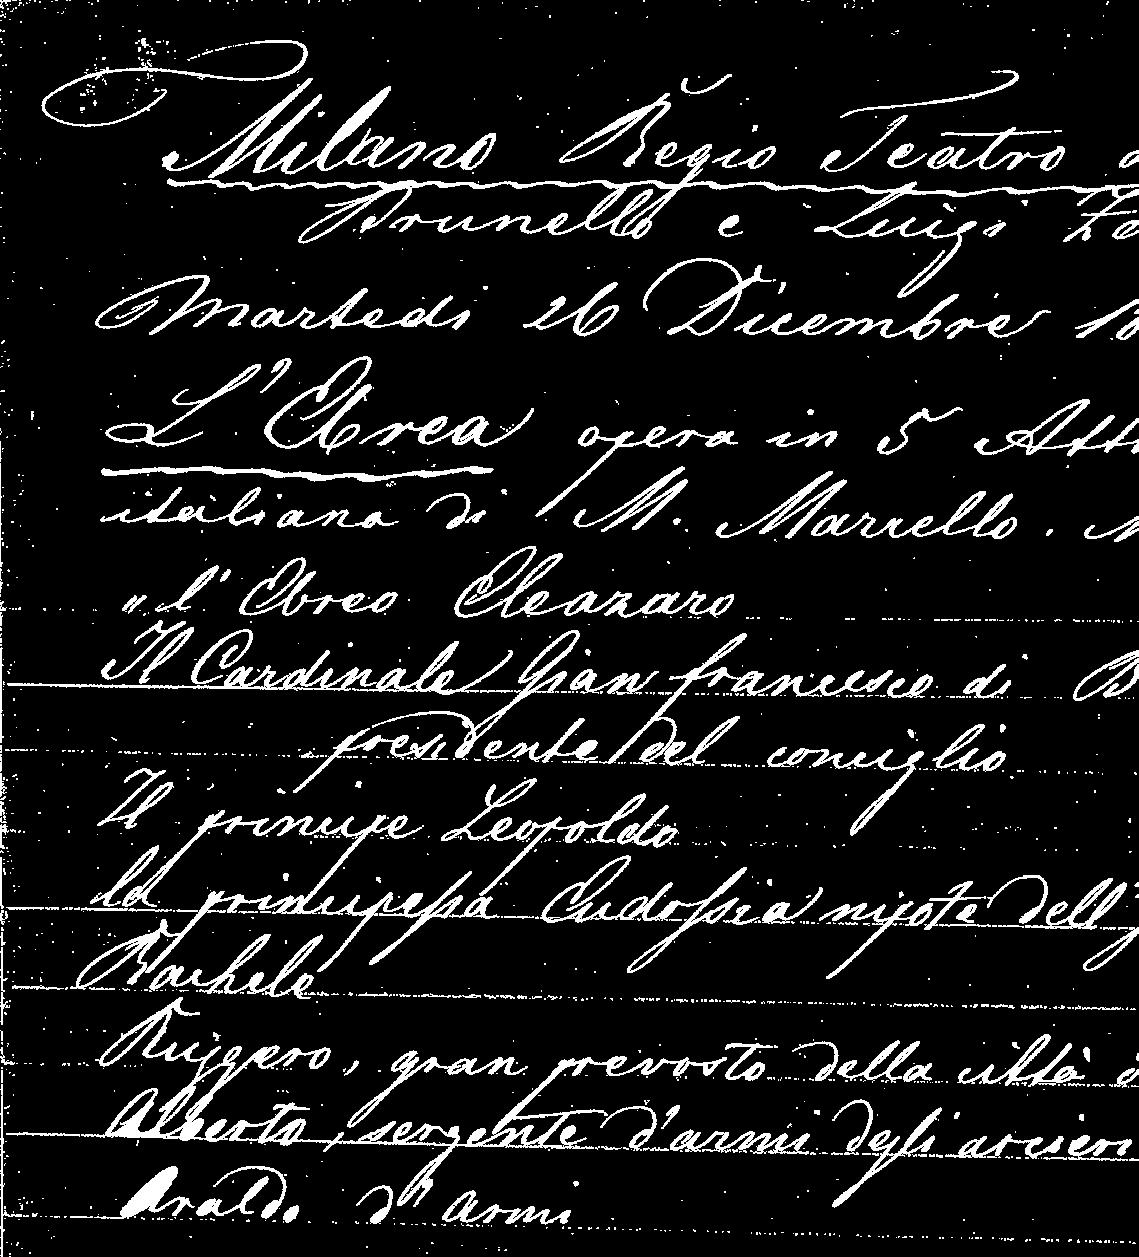 Milano Regio Teatro
Brunello e Luigi
Martedi 26 Dicembre 18
L'Ebrea opera in 5 Atti
italiana di M. Marcello.
"l'Ebreo Eleazaro
Il Cardinale Gian francesco di B
presidente del consiglio
Il principe Leopoldo
la principessa Eudossia nipote dell'
Rachele
Ruggero, gran prevosto della città d
Alberto, sergente d'armi degli arcieri
Araldo d'armi